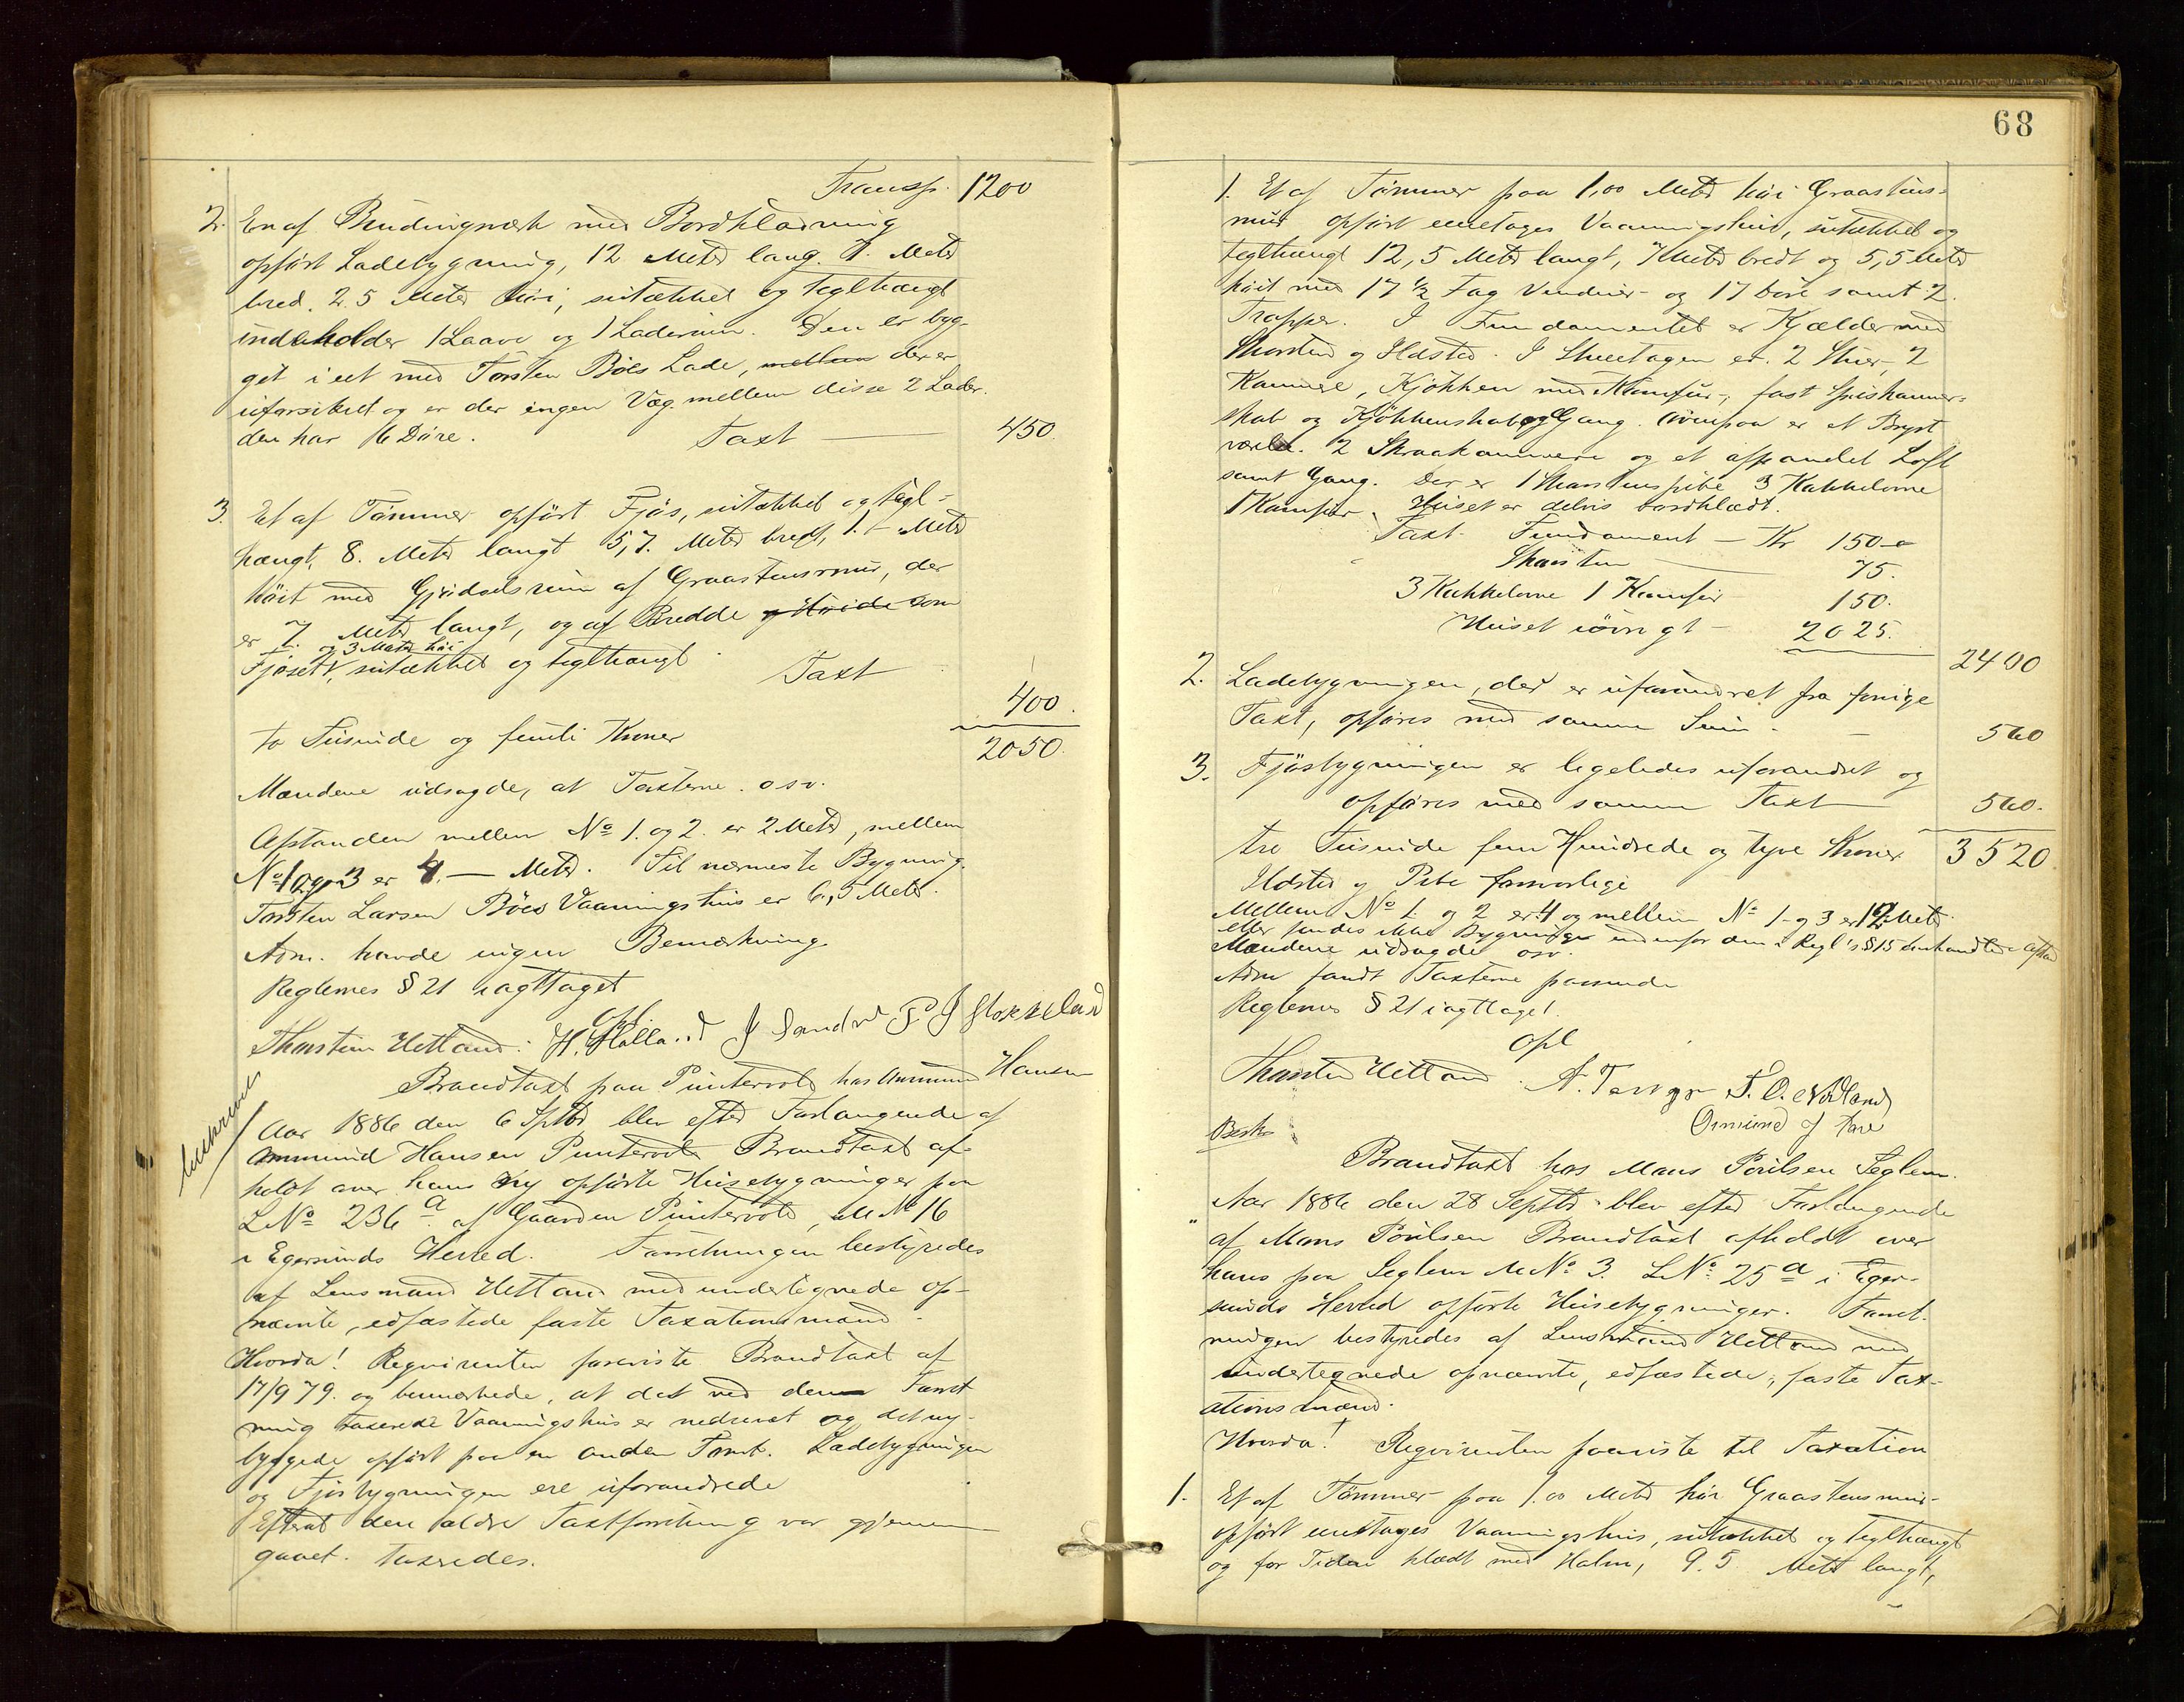 Transp. 1200
2. En af Bindingsværk med Bordklædning
opført Ladebygning, 12 Meter lang. 7. Meter
bred. 2.5 Meter høi, sutækket og teglhængt
indeholder 1 Laave og 1 Laderum. Den er byg-
get i eet med Torsten Böes Lade, mellem der er
uforsikret og er der ingen Væg mellem disse 2 Lader.
den har 6 Döre. Taxt — 450.
3. Et af Tømmer opført Fjøs, sutækket og tegl-
hængt, 8. Meter langt 5,7. Meter bredt, Meter
høit med Gjødselsrum af Graastensmur, der
er 7. Meter langt, og af Bredde og Høide som
og 3 Meter høi
Fjøset, sutækket og teglhængt Taxt
400.
to Tusinde og femti Kroner 2050.
Mændene udsagde, at Taxterne osv.
Afstanden mellem No 1. og 2. er 2 Meter, mellem
No 1 og 3 er 4. — Meter. Til nærmeste Bygning
Torsten Larsen Böes Vaaningshus er 6,5 Meter.
Adm. havde ingen Bemærkning
Reglernes § 21 iagttaget
Opl.
Thorstein Hetland. H. Hølland J Sandve P J Slokkeland
Brandtaxt paa Puntervold hos Ammund Hansen
Aar 1886 den 6 Septbr blev efter Forlangende af
Ammund Hansen Puntervold Brandtaxt af-
holdt over hans ny opførte Husebygninger paa
L No 236 a. af Gaarden Puntervold, M No 16
i Egersunds Herred. Forretningen bestyredes
af Lensmand Hetland med undertegnede op-
nævnte, edfæstede faste Taxationsmænd.
Hvorda! Reqvirenten foreviste Brandtaxt af
17/9 79. og bemærkede, at det ved denne Forret
ning taxerede Vaaningshus er nedrevet og det ny-
byggede opført paa en anden Tomt. Ladebygningen
og Fjøsbygningen ere uforandrede
Efterat den ældre Taxtforretning var gjennem-
gaaet. taxeredes.
68
1. Et af Tømmer paa 1,00 Meter høi Graastens-
mur opført eenetages Vaaningshus, sutækket og
teglhængt 12,5 Meter langt, 7 Meter bredt og 5,5 Meter
høit med 17 1/2 Fag Vinduer og 17 Döre samt 2
Trapper. I Fundamentet er Kjælder med
Skorsten og Ildsted. I Stueetagen er. 2 Stuer, 2
Kammere, Kjøkken med Komfur, fast Spiskammer-
skab og Kjøkkenskab og Gang. Ovenpaa er et Bryst
værk. 2 Skraakammere og et aflpanelet Loft
samt Gang. Der er 1 Skorstenspibe 3 Kakkelovne
1 Komfur. Huset er delvis bordklædt.
Taxt. Fundament — Kr 150 —
Skorsten — 75.
3 Kakkelovne 1 Komfur 150.
Huset iøvrigt — 2025.
2400
2. Ladebygningen, der er uforandret fra forrige
Taxt, opføres med samme Sum. — 560
3. Fjøsbygningen er ligeledes uforandret og
opføres med samme Taxt — 560.
tre Tusinde fem Hundrede og tyve Kroner 3520.
Ildsted og Pibe forsvarlige
Mellem No 1. og 2 er 4 og mellem No 1 og 3 er 12 Meter
eller findes ikke Bygninger indenfor den i Regl's § 15 omhandlede Afstand
Mændene udsagde osv.
Adm fandt Taxterne passende
Reglernes § 21 iagttaget.
Opl
Thorstein Hetland. A. Tengs T. O. Nodland
Ommund J Aase
Besk.
Brandtaxt hos Mons Poulsen Seglem.
Aar 1886 den 28 Septbr blev efter Forlangende
af Mons Poulsen Brandtaxt afholdt over
hans paa Seglem M No 3. L No 25 a i Eger-
sunds Herred opførte Husebygninger. Forret-
ningen bestyredes af Lensmand Hetland med
undertegnede opnævnte, edfæstede, faste Tax-
ationsmænd.
Hvorda! Reqvirenten foreviste til Taxation
1. Et af Tømmer paa 1.00 Meter høi Graastensmur
opført eenetages Vaaningshus, sutækket og teglhængt
og for Tiden klædt med Halm, 9.5. Meter langt,